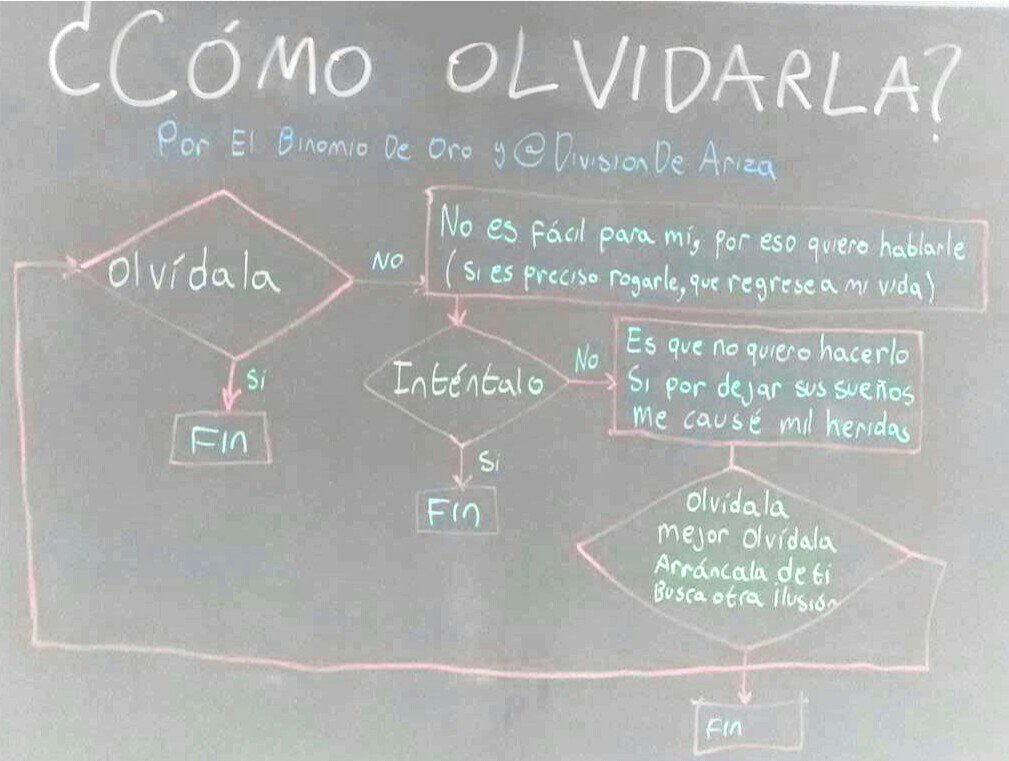 ¿CÓMO OLVIDARLA?
Por El Binomio De Oro y @DivisionDeAriza
Olvídala
NO
No es fácil para mí, por eso quiero hablarle
(si es preciso rogarle, que regrese a mi vida)
Si
Fin
Inténtalo
No
Es que no quiero hacerlo
Si por dejar sus sueños
Me causé mil heridas
Si
Fin
Olvídala
mejor olvídala
Arráncala de ti
Busca otra ilusión
Fin